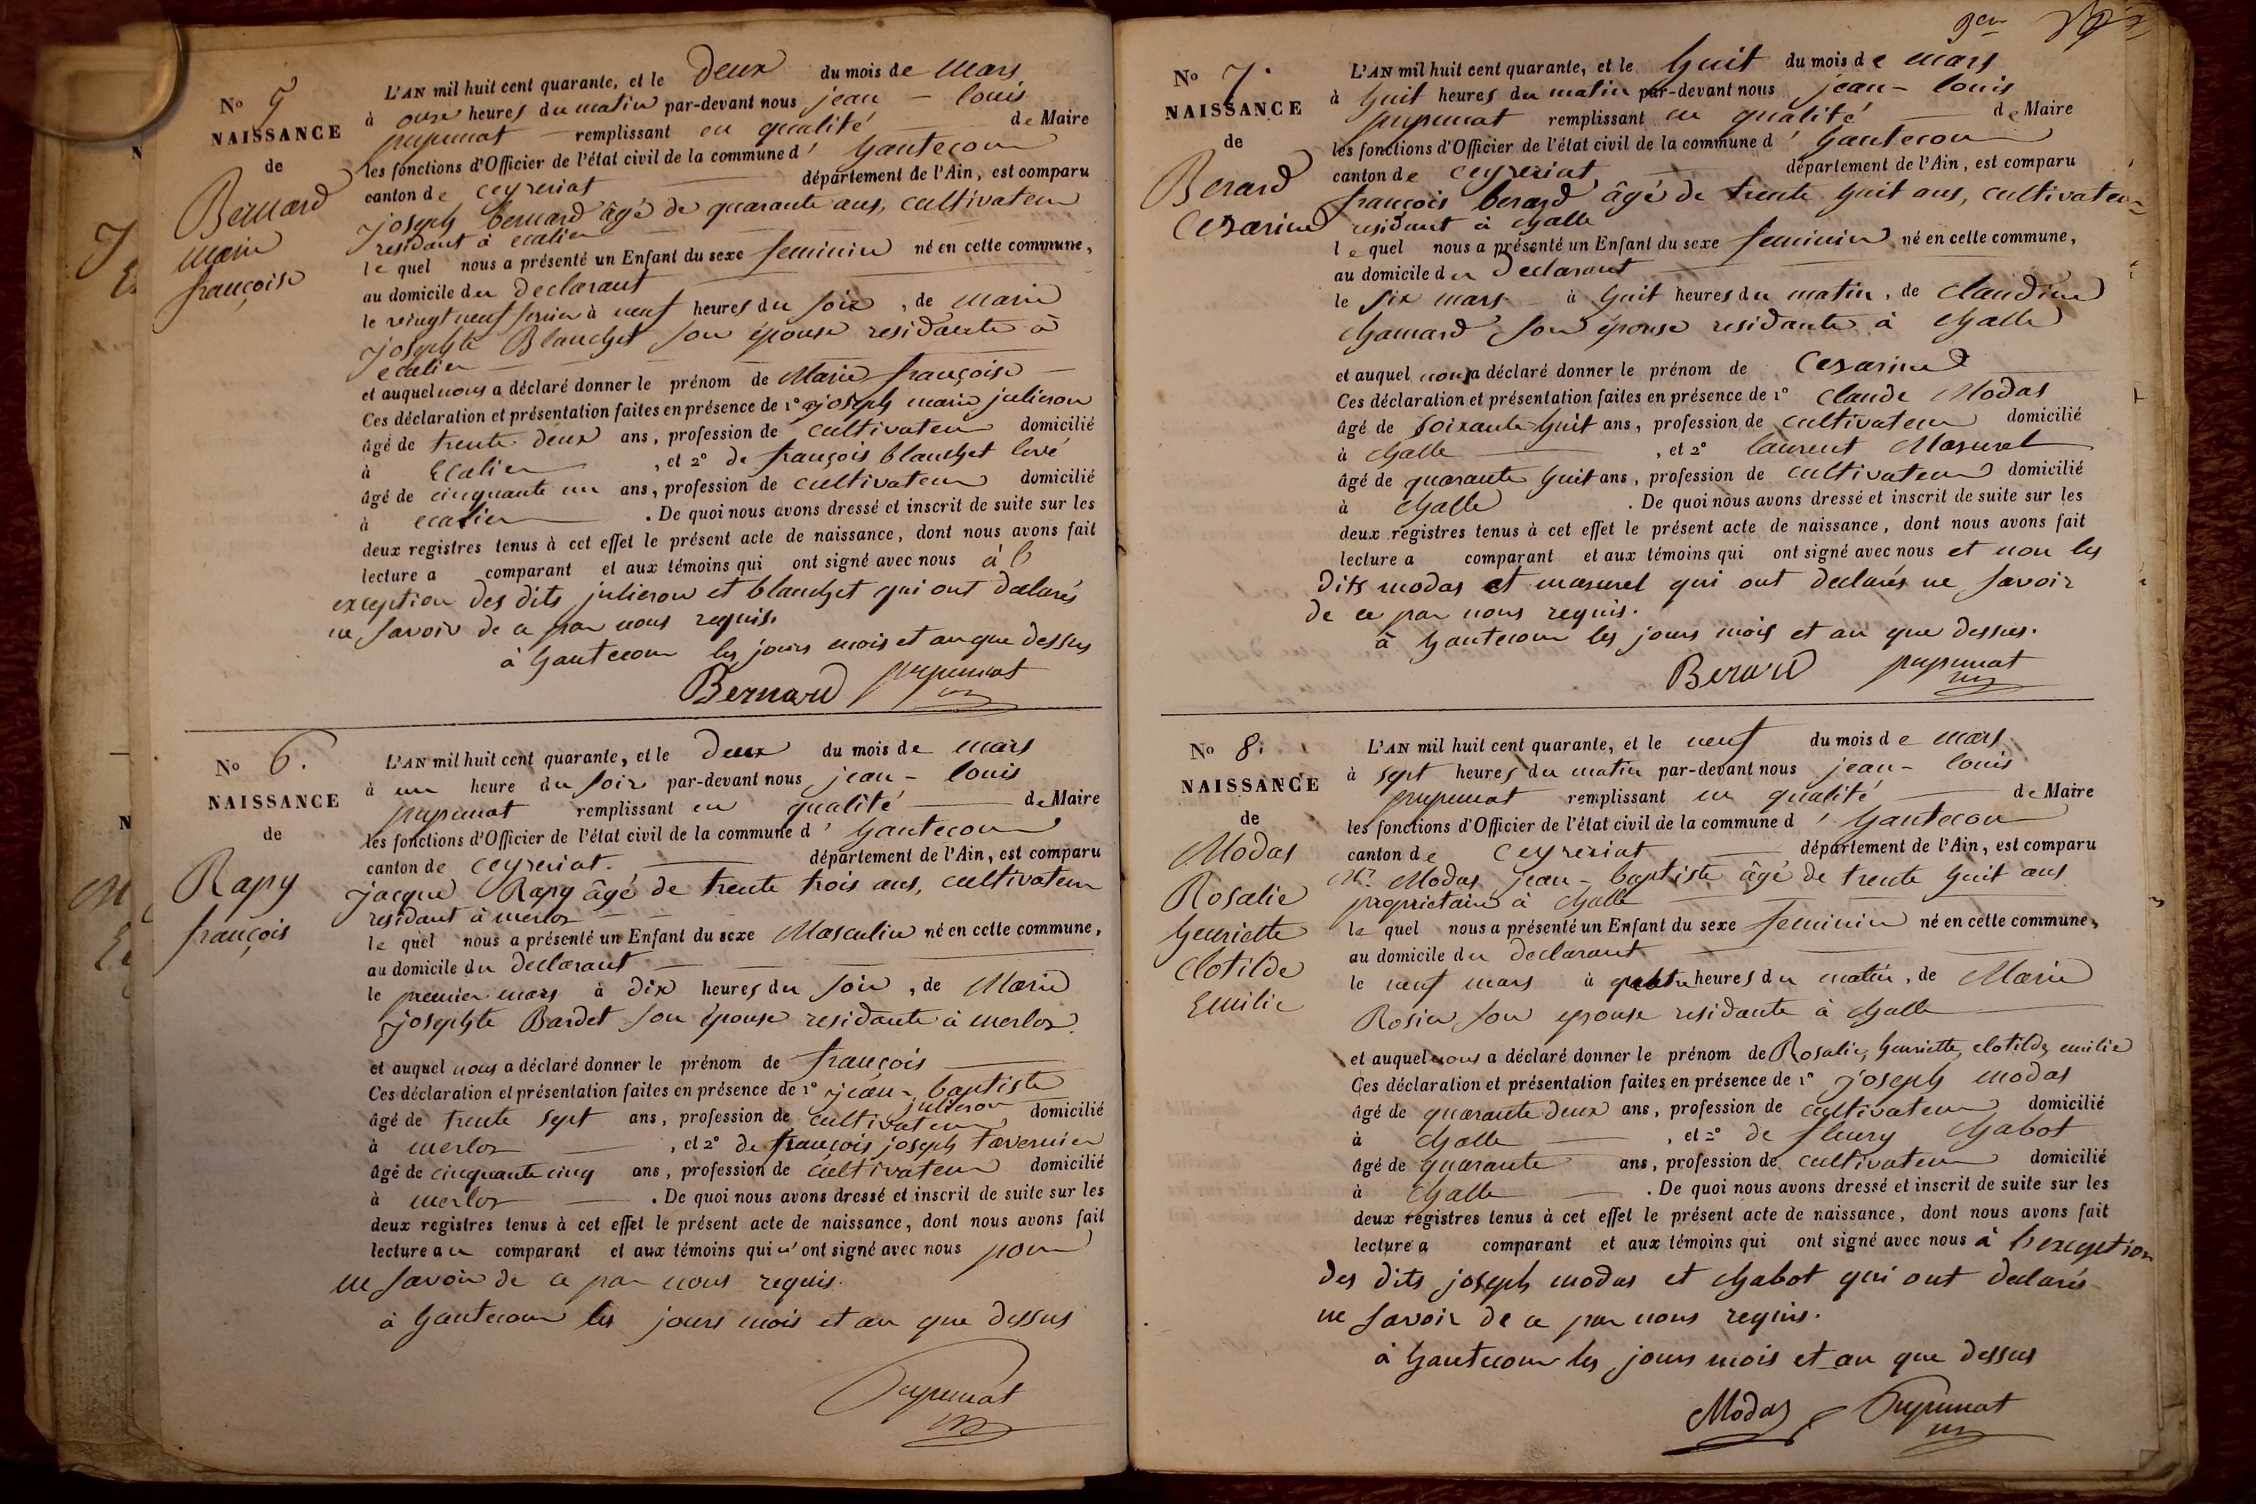 N° 5
NAISSANCE
de
Bernard
marie
françoise
L'AN mil huit cent quarante, et le deux du mois de mars
à onze heures du matin par-devant nous jean - louis
pupunat remplissant en qualité de Maire
les fonctions d'Officier de l'état civil de la commune d' hautecour
canton de ceyzeriat département de l'Ain, est comparu
joseph bernard âgé de quarante ans, cultivateur
residant à
le quel nous a présenté un Enfant du sexe feminin né en cette commune,
au domicile du declarant
le vingt neuf fevrier à neuf heures du soir, de marie
josephte Blanchet son épouse residante à
et auquel nous a déclaré donner le prénom de Marie françoise
Ces déclaration et présentation faites en présence de 1° joseph marie julieron
âgé de trente deux ans, profession de cultivateur domicilié
à , et 2° de françois blanchet
âgé de cinquante un ans, profession de cultivateur domicilié
à . De quoi nous avons dressé et inscrit de suite sur les
deux registres tenus à cet effet le présent acte de naissance, dont nous avons fait
lecture a comparant et aux témoins qui ont signé avec nous à l'
exception des dits julieron et blanchet qui ont déclarés
ne savoir de ce par nous requis.
à hautecour les jours mois et an que dessus
Bernard pupunat
N° 6.
NAISSANCE
de
Rapy
françois
L'AN mil huit cent quarante, et le deux du mois de mars
à un heure du soir par-devant nous jean - louis
pupunat remplissant en qualité de Maire
les fonctions d'Officier de l'état civil de la commune d' hautecour
canton de ceyzeriat. département de l'Ain, est comparu
jacque Rapy âgé de trente trois ans, cultivateur
residant à merloz
le quel nous a présenté un Enfant du sexe Masculin né en cette commune,
au domicile du declarant
le premier mars à dix heures du soir, de Marie
josephte Bardet son épouse residante à merloz.
et auquel nous a déclaré donner le prénom de françois
Ces déclaration et présentation faites en présence de 1° jean - baptiste
julieron
âgé de trente sept ans, profession de cultivateur domicilié
à merloz , et 2° de françois joseph tavernier
âgé de cinquante cinq ans, profession de cultivateur domicilié
à merloz . De quoi nous avons dressé et inscrit de suite sur les
deux registres tenus à cet effet le présent acte de naissance, dont nous avons fait
lecture au comparant et aux témoins qui n'ont signé avec nous pour
ne savoir de ce par nous requis.
à hautecour les jours mois et an que dessus
Pupunat
N° 7.
NAISSANCE
de
Berard
Cezarine
L'AN mil huit cent quarante, et le huit du mois de mars
à huit heures du matin par-devant nous jean - louis
pupunat remplissant en qualité de Maire
les fonctions d'Officier de l'état civil de la commune d' hautecour
canton de ceyzeriat département de l'Ain, est comparu
françois berard âgé de trente huit ans, cultivateur
residant à challe
le quel nous a présenté un Enfant du sexe feminin né en cette commune,
au domicile du Declarant
le six mars à huit heures du matin, de claudine
chamard son épouse residante à challe
et auquel nous a déclaré donner le prénom de Cezarine
Ces déclaration et présentation faites en présence de 1° claude Modas
âgé de soixante huit ans, profession de cultivateur domicilié
à challe , et 2° laurent Mazuret
âgé de quarante huit ans, profession de cultivateur domicilié
à challe . De quoi nous avons dressé et inscrit de suite sur les
deux registres tenus à cet effet le présent acte de naissance, dont nous avons fait
lecture a comparant et aux témoins qui ont signé avec nous et non les
dits modas et mazuret qui ont declarés ne savoir
de ce par nous requis.
à hautecour les jours mois et an que dessus.
Berard pupunat
N° 8.
NAISSANCE
de
Modas
Rosalie
henriette
clotilde
Emilie
L'AN mil huit cent quarante, et le neuf du mois de mars
à sept heures du matin par-devant nous jean - louis
pupunat remplissant en qualité de Maire
les fonctions d'Officier de l'état civil de la commune d' hautecour
canton de ceyzeriat département de l'Ain, est comparu
Mr. Modas jean - baptiste âgé de trente huit ans
proprietaire à challe
le quel nous a présenté un Enfant du sexe feminin né en cette commune,
au domicile du declarant
le neuf mars à quatre heures du matin, de Marie
Rosier son epouse residante à challe
et auquel nous a déclaré donner le prénom de Rosalie, henriette, clotilde, emilie
Ces déclaration et présentation faites en présence de 1° joseph modas
âgé de quarante deux ans, profession de cultivateur domicilié
à challe , et 2° de fleury chabot
âgé de quarante ans, profession de cultivateur domicilié
à challe . De quoi nous avons dressé et inscrit de suite sur les
deux registres tenus à cet effet le présent acte de naissance, dont nous avons fait
lecture a comparant et aux témoins qui ont signé avec nous à l'exception
des dits joseph modas et chabot qui ont declarés
ne savoir de ce par nous requis.
à hautecour les jours mois et an que dessus
Modas Pupunat